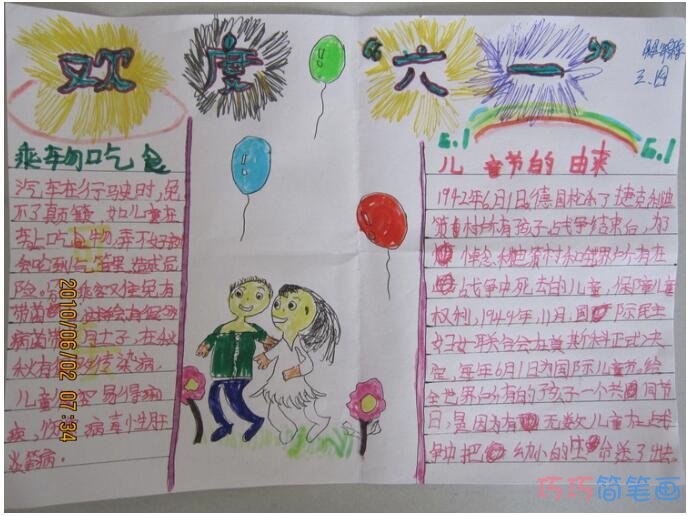 欢度“六一”
三、四
6.1
6.1
乘车勿吃食
汽车在行驶时,免
不了颠簸,如儿童在
车上吃食物,弄不好就
会呛到气管里造成危
险。
病菌带
秋有 传染病
儿童 容易得病
病, 病毒性肝
炎等病。
儿童节的由来
1942年6月1日,德国枪杀了捷克利迪
策村所有孩子,战争结束后,为
悼念利迪策村和全世界所有在
战争中死去的儿童,保障儿童
权利,1949年,11月,国际民主
妇女联合会在莫斯科正式决
定,每年6月1日为国际儿童节。给
全世界所有的孩子一个共同节
日,是因为有无数儿童在战
争中把幼小的生命送了出去。
2010/06/02 07:34
巧巧简笔画